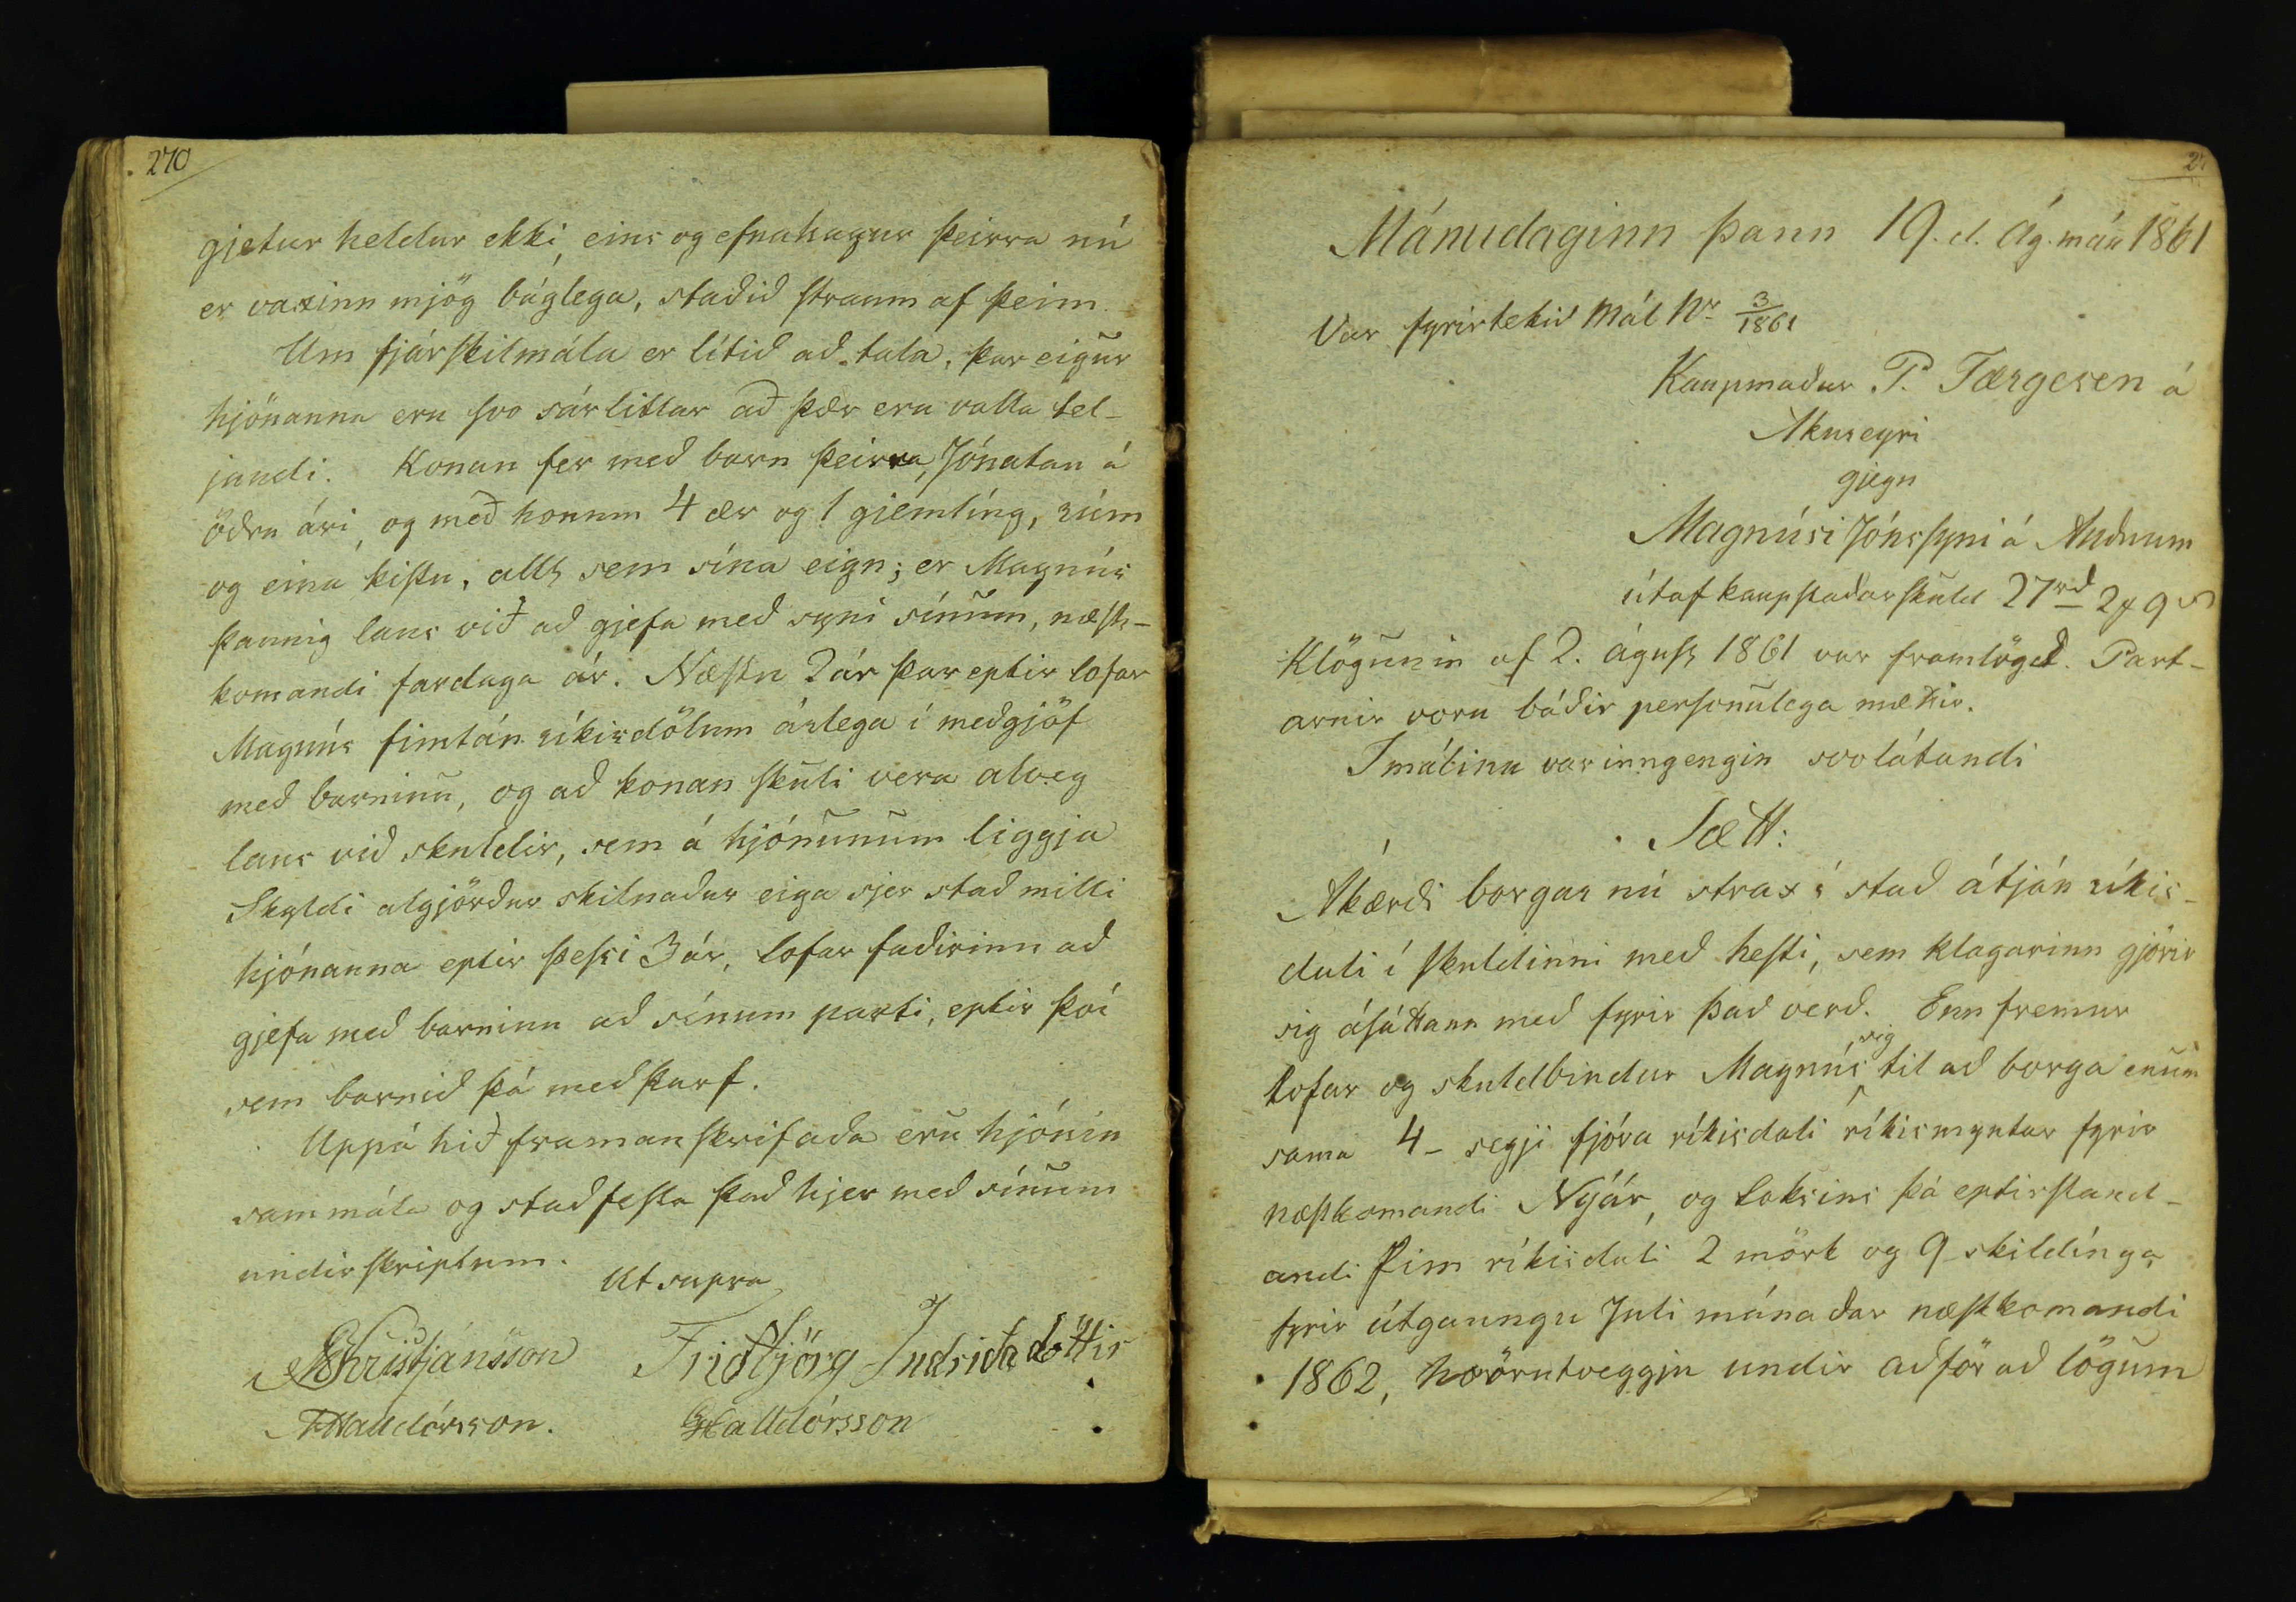 270
gjetur heldur ekki, eins og efnahagur þeirra nú
er vaxinn mjög báglega, staðið straum af þeim.
Um fjárskilmála er lítið að tala, þar eigur
hjónanna eru svo sárlitlar að þær eru valla tel-
jandi. Konan fer með barn þeirra, Jónatan á
öðru ári, og með honum 4 ær og 1 gjemlíng, rúm
og eina kistu, allt sem sína eign; er Magnús
þannig laus við að gjefa með syni sínum, næst-
komandi fardaga ár. Næstu 2 ár þar eptir lofar
Magnús fimtán ríkisdölum árlega í meðgjöf
með barninu, og að konan skuli vera alveg
laus við skuldir, sem á hjónunum liggja
Skyldi algjörður skilnaður eiga sjer stað milli
hjónanna eptir þessi 3 ár, lofar faðirinn að
gjefa með barninu að sínum parti, eptir því
sem barnið þá með þarf.
Uppá hið framanskrifaða eru hjónin
sammála og staðfesta það hjer með sínum
undirskriptum.
Ut supra
MChristjánsson Friðbjörg Indriðadóttir
Halldórsson. Halldórsson
Mánudaginn þann 19. d. Ág. mán 1861
Var fyrirtekið Mál Nr 3/1861
Kaupmaður P. Tærgesen á
Akureyri
gjegn
Magnúsi Jónssyni á Auðnum
útaf kaupstaðarskuld 27rd 2 9
Klögunin af 2. ágúst 1861 var framlögð. Part-
arnir voru báðir personulega mættir.
Í málinu var inngengin svolátandi
Sætt:
Ákærði borgar nú strax í stað átján ríkis-
dali í skuldinni með hesti, sem klagarinn gjörir
sig ásáttann með fyrir það verð. Enn fremur
lofar og skuldbindur Magnús sig til að borga enum
sama 4 - segji fjóra ríkisdali ríkismyntar fyrir
næstkomandi Nýár, og loksins þá eptirstand-
andi fim ríkisdali 2 mörk og 9 skildínga
fyrir útgaungu Juli mánaðar næstkomandi
1862, hvörutveggju undir aðför að lögum